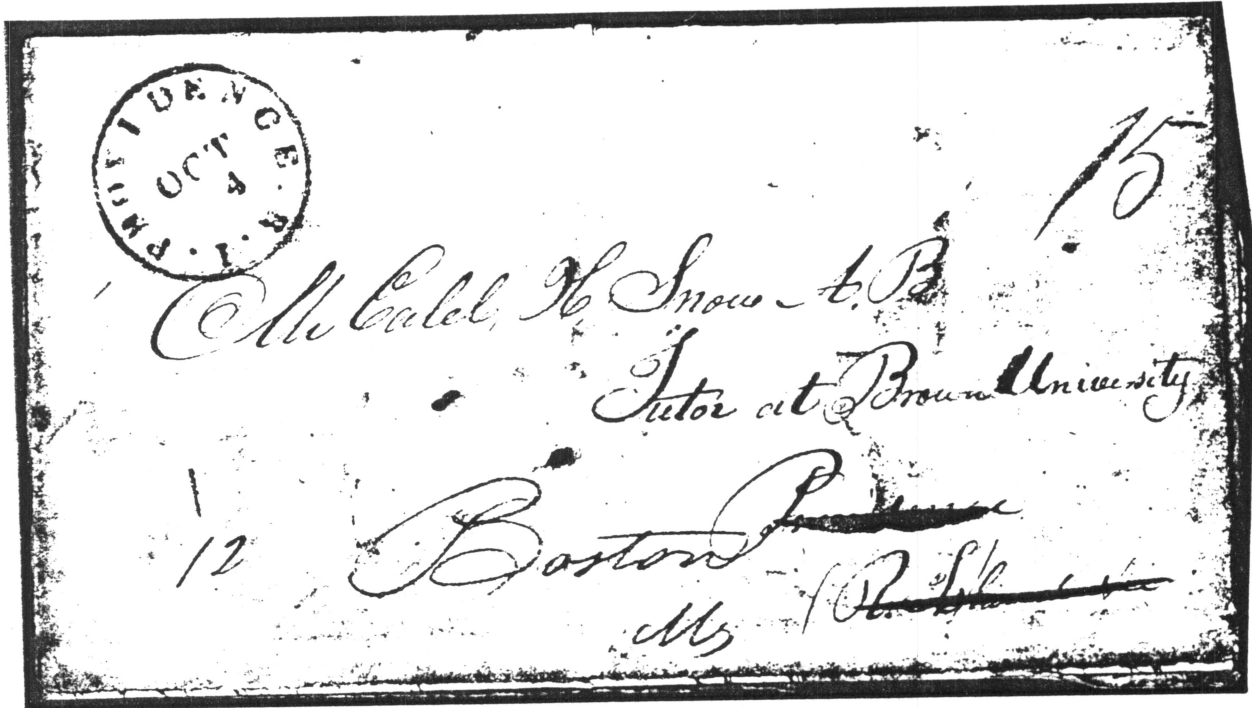 PROVIDENCE. R. I.
OCT
4
15
Mr Caleb H Snow A. B
Tutor at Brown University
12
Boston Providence
Ms R. Island